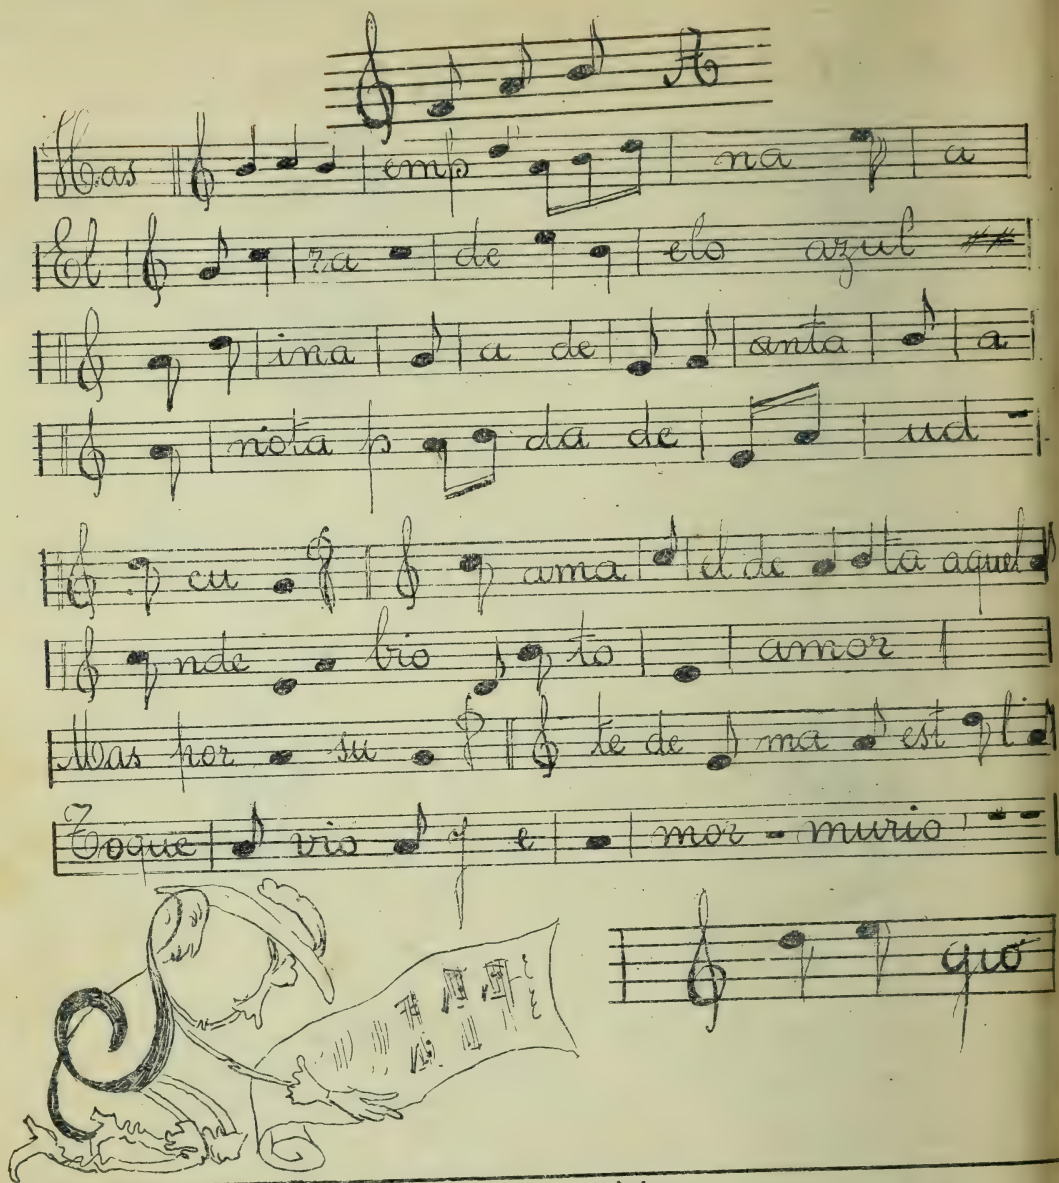 A
Mas emp na a
El ra de elo azul
ina a de anta a
nota p da de ud
cu ama el de ta aquel
nde bio to amor
Mas por su te de ma est l
Toque vio y e mor-murio
gio